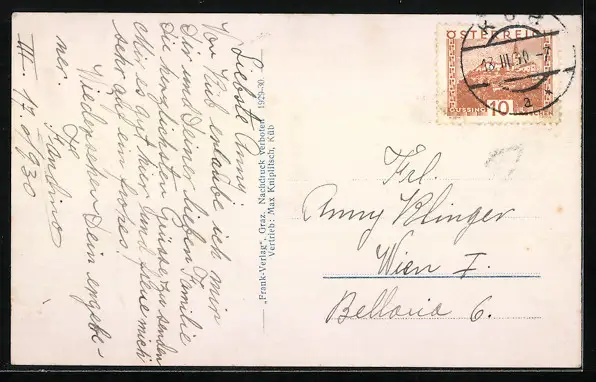 Liebste Anny!
Von Küb erlaube ich mir
Dir und Deiner lieben Familie
die herzlichsten Grüsse zu senden
Mir es gut hier und freue mich
sehr auf ein frohes
Wiedersehen Dein ergebe-
ner.
III. 17. 1930
„Frank-Verlag", Graz. Nachdruck verboten 1929-30
Vertrieb: Max Kniplitsch, Küb
ÖSTERREICH
10
GÜSSING
GROSCHEN
KÜB
13.III.30-7
a
Frl.
Anny Klinger
Wien I.
Bellaria 6.